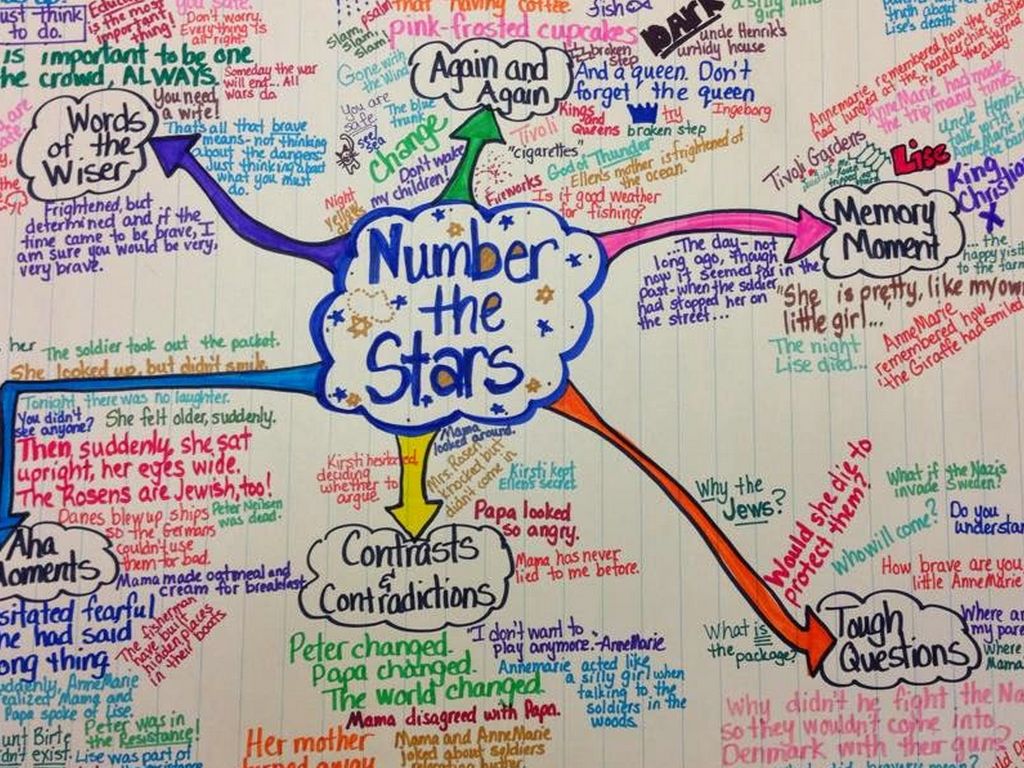 Number
the
Stars
Words
of the
Wiser
just think
to do.
most
important
thing!
you safe.
Don't worry.
Everything is
all-right.
is important to be one
the crowd, ALWAYS.
Someday the war
will end... All
wars do.
You need
a wife!
Thats all that brave
means- not thinking
about the dangers.
Just thinking about
what you must
do.
Frightened, but
determined and if the
time came to be brave, I
am sure you would be very,
very brave.
Again and
Again
psalm
that having coffee
fish
pink-frosted cupcakes
Slam,
slam,
slam!
Gone with
the Wind
broken
step
DARK
uncle Henrik's
untidy house
And a queen. Don't
forget the queen
You are
safe
see
sea
The blue
trunk
change
Don't wake
my children!
Night
yellow
Kings
and
Queens
try
Ingeborg
Tivoli
broken step
"cigarettes"
God of Thunder
Fireworks
Ellen's mother is frightened of
the ocean.
Is it good weather
for fishing?
Memory
Moment
a silly girl
truth about
Lise's death.
Annemarie remembered how the dog
had lunged at the handkerchief, sniffed
it, and turned away.
AnneMarie had made
the trip many times.
uncle Henrik
talk
Tivoli Gardens
Lise
King
Christian
X
...The day- not
long ago, though
now it seemed far in the
past-when the soldier
had stopped her on
the street...
...the
happy visits
to the farm
"She is pretty, like my own
little girl...
The night
Lise died...
AnneMarie
remembered how
the Giraffe had smiled
Aha
Moments
her
The soldier took out the packet.
She looked up, but didn't smile.
Tonight there was no laughter.
You didn't
see anyone?
She felt older, suddenly.
Then, suddenly, she sat
upright, her eyes wide.
The Rosens are Jewish, too!
Danes blew up ships
so the Germans
couldn't use
them for bad.
Peter Neilsen
was dead.
Mama made oatmeal and
cream for breakfast
hesitated fearful
he had said
wrong thing.
The
fisherman
have built
hidden places
in their
boats
Suddenly, AnneMarie
realized Mama and
Papa spoke of Lise.
Peter was in
the Resistance!
Aunt Birte
didn't exist.
Lise was part of
Contrasts
&
Contradictions
Kirsti hesitated
deciding
whether to
argue.
Mama
looked around.
Mrs. Rosen
knocked but
didn't come in
Kirsti kept
Ellen's secret.
Papa looked
so angry.
Mama has never
lied to me before.
Peter changed.
Papa changed.
The world changed.
"I don't want to
play anymore."-AnneMarie
Annemarie acted like
a silly girl when
talking to the
soldiers in the
woods.
Mama disagreed with Papa.
Her mother
turned away
Mama and AnneMarie
joked about soldiers
Tough
Questions
Why the
Jews?
Would she die to
protect them?
What if the Nazis
invade Sweden?
Who will come?
Do you
understand
How brave are you
little AnneMarie
What is
the package?
Where are
my
Where
Mama
Why didn't he fight the
so they wouldn't come into
Denmark with their guns?